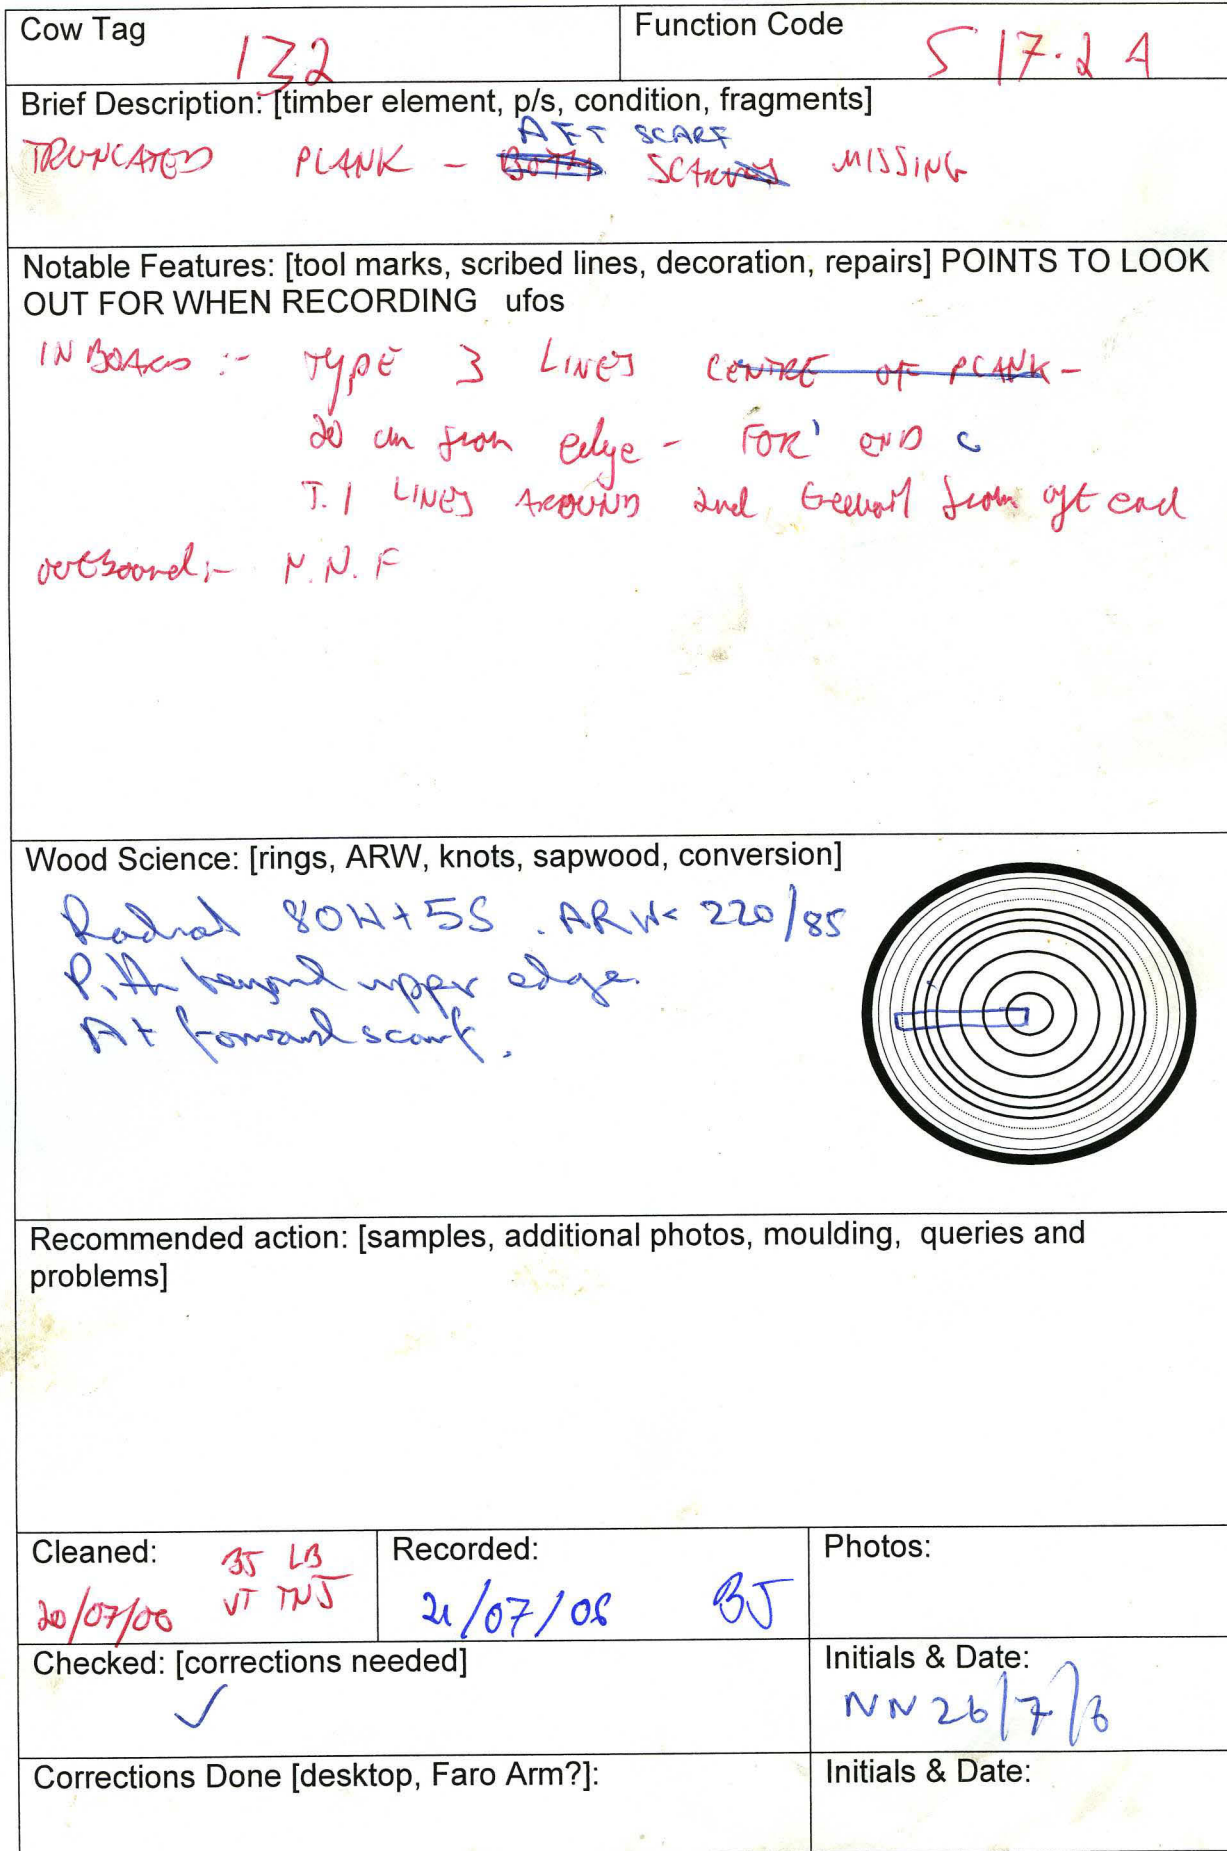 Cow Tag
132
Function Code
S 17.2 A
Brief Description: [timber element, p/s, condition, fragments]
AFT SCARF
TRUNCATED PLANK - BOTH SCARVES MISSING
Notable Features: [tool marks, scribed lines, decoration, repairs] POINTS TO LOOK
OUT FOR WHEN RECORDING ufos
INBOARD :- TYPE 3 LINES CENTRE OF PLANK -
20 cm from edge - FOR' END
T.1 LINES AROUND 2nd treenail from aft end
outboard :- N.N.F
Wood Science: [rings, ARW, knots, sapwood, conversion]
Radial 80H+5S . ARW< 220/85
Pith beyond upper edge.
At forward scarf.
Recommended action: [samples, additional photos, moulding, queries and
problems]
Cleaned:
BJ LB
VT TNJ
20/07/06
Recorded:
21/07/06 BJ
Photos:
Checked: [corrections needed]
✓
Initials & Date:
NN 26/7/6
Corrections Done [desktop, Faro Arm?]:
Initials & Date: